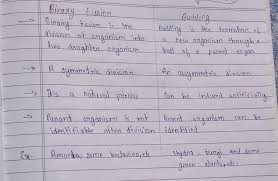 Binary Fission Budding
Binary fission is the Budding is the formation of
division of organism into a new organism through a
two daughter organism. bud of a parent organ
A symmetric division An asymmetric division
Its a natural process Can be induced artificially
Parent organism is not Parent organism can be
identifiable after division identified
Ex- Amoeba, some bacteria, etc Hydra, fungi and some
plants, etc